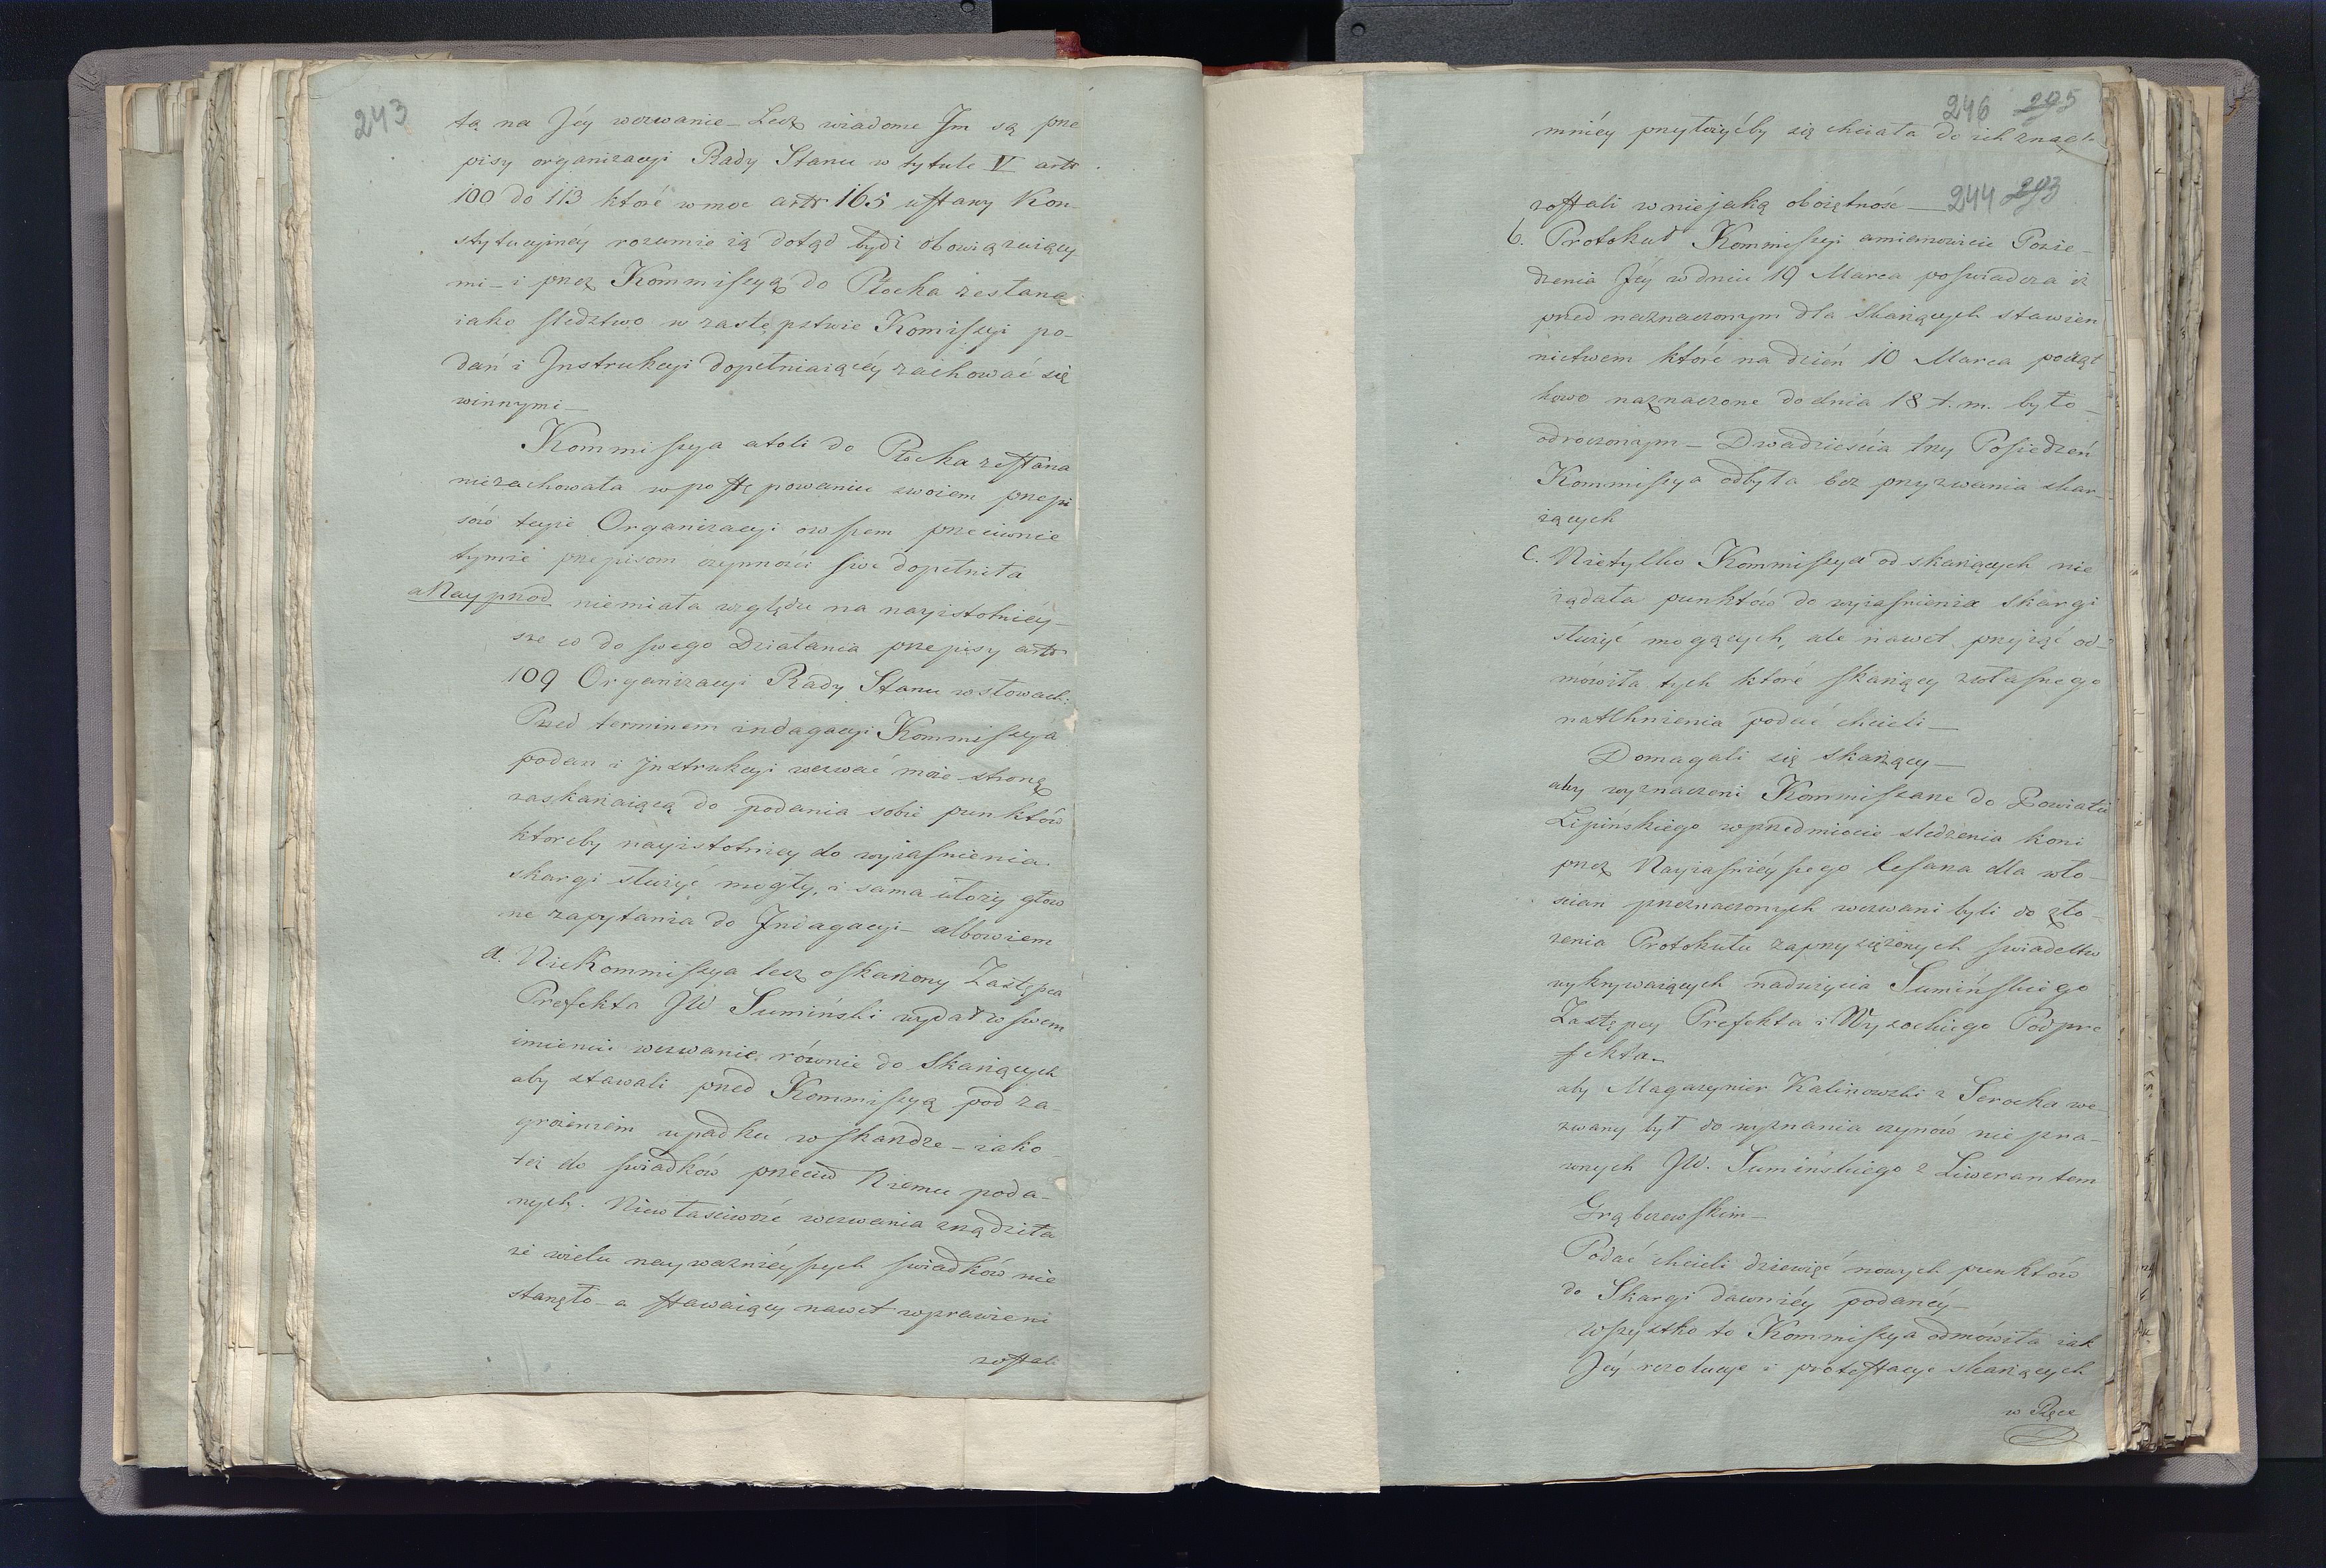 243
tą na Jéy wezwanie – Lecz wiadome Jm są prze
pisy organizacyi Rady Stanu w tytule V artr
100 do 113 które w moc artr 165 ustawy Kon-
stytucyinéy rozumie ią dotąd bydź obowiązuiący
mi – i przez Kommissyą do Płocka zesłaną
iako sledztwo w zastępstwie Komissyi po-
dań i Jnstrukcyi dopełniaiącéy zachować się
winnymi –
Kommissya atoli do Płocka zesłana
niezachowała w postępowaniu swoiem przepi
sów teyże Organizacyi owszem przeciwnie
tymże przepisom czynności swe dopełniła
a Nayprzod niemiała względu na nayistotniéy-
sze co do swego Działania przepisy artr
109 Organizacyi Rady Stanu w słowach:
Przed terminem indagacyi Kommissya
podań i Jnstrukcyi wezwać może stronę
zaskarżaiącą do podania sobie punktów
ktoreby nayistotniey do wyiasnienia
skargi służyć mogły, i sama ułoży głów
ne zapytania do Jndagacyi – albowiem
a. Nie Kommissya lecz oskarżony Zastępca
Prefekta JW Sumiński wydał w swem
imieniu wezwanie równie do Skarżących
aby stawali przed Kommissyą pod za-
grożeniem upadku w skardze – iako-
też do swiadków przeciw Niemu poda-
nych. Niewłasciwość wezwania zrządziła
że wielu nayważniéyszych swiadków nie
stanęło – a stawaiący nawet wprawieni
zostali
246 295
mniéy przyłożyćby się chciała do ich
244 293
zostali w niejaką oboiętność –
b. Protokuł Kommissyi a mianowicie Posie-
dzenia Jéy w dniu 19 Marca poswiadcza iż
przed naznaczonym dla Skarżących stawien
nictwem które na dzień 10 Marca począt
kowo naznaczone do dnia 18 t. m. było –
odroczonym – Dwadzieścia trzy Posiedzeń
Kommissya odbyła bez przyzwania skar-
żących
c. Nietylko Kommissya od skarżących nie
żądała punktów do wyiasnienia skargi
służyć mogących, ale nawet przyiąć od-
mówiła tych które skarżący z własnego
natchnienia podać chcieli –
Domagali się skarżący –
aby wyznaczeni Kommissarze do Powiatu
Lipińskiego w przedmiocie sledzenia koni
przez Nayiasniéyszego Cesarza dla wło-
scian przeznaczonych wezwani byli do zło-
żenia Protokułu zaprzysiężonych swiadectw
wykrywaiących nadużycia Sumińskiego
Zastępcy Prefekta i Wysockiego Podpre
fekta –
aby Magazynier Kalinowski z Serocka we-
zwany był do wyznania czynów nie pra-
wnych JW. Sumińskiego z Liwerantem
Grąbczewskim –
Podać chcieli dziewięć nowych punktów
do Skargi dawniéy podanéy –
Wszystko to Kommissya odmówiła iak
Jéy rezolucye i protestacye skarżących
w Ręce